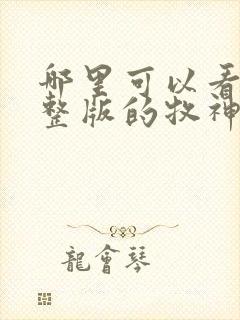 哪里可以看
整版的牧神
龍會琴